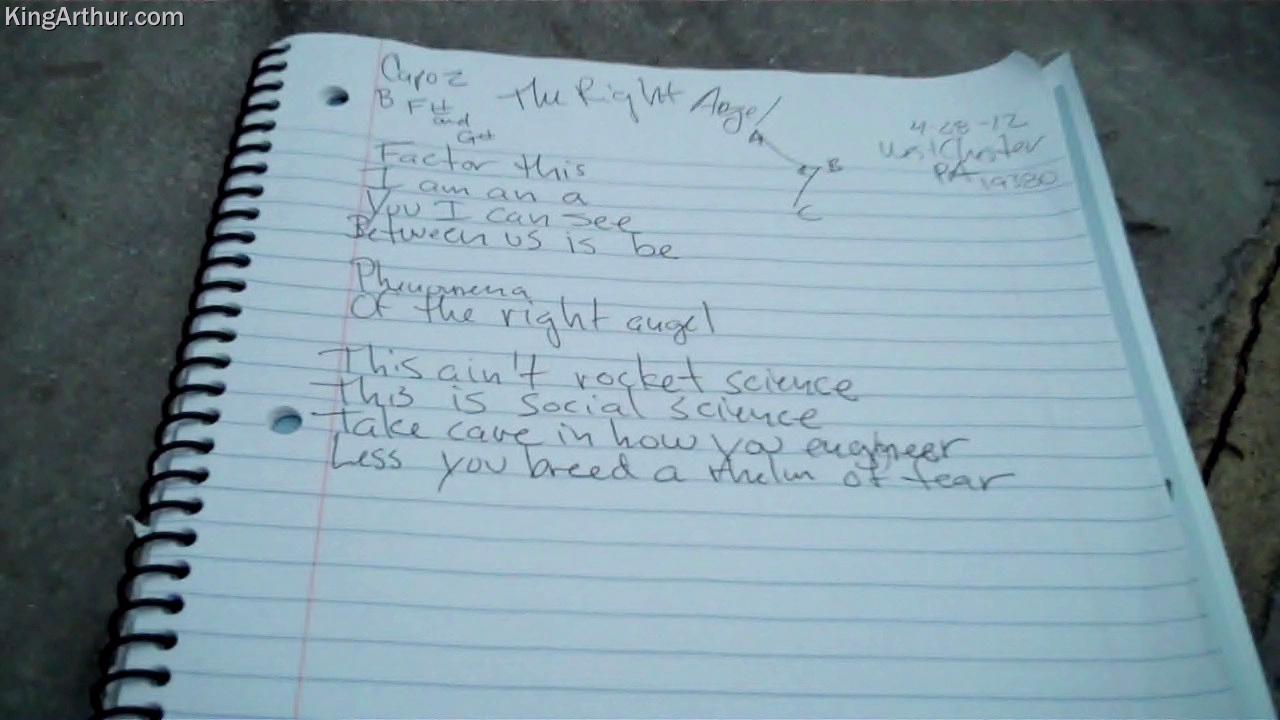 KingArthur.com
Capo 2
B F# and Get
The Right Angel
A
B
C
4-28-12
West Chester
PA 19380
Factor this
I am an a
You I can see
Between us is be
Phenomena
Of the right angel
This ain't rocket science
This is social science
Take care in how you engineer
Less you breed a rhelm of fear